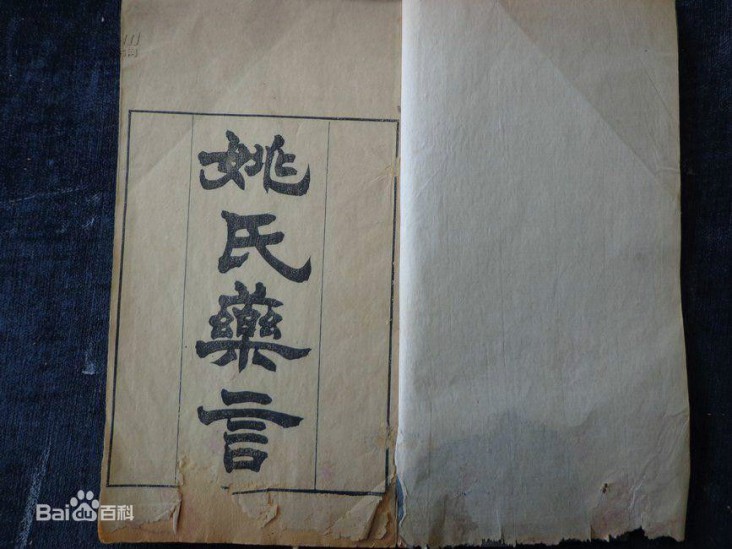 姚氏藥言
Bai du 百科